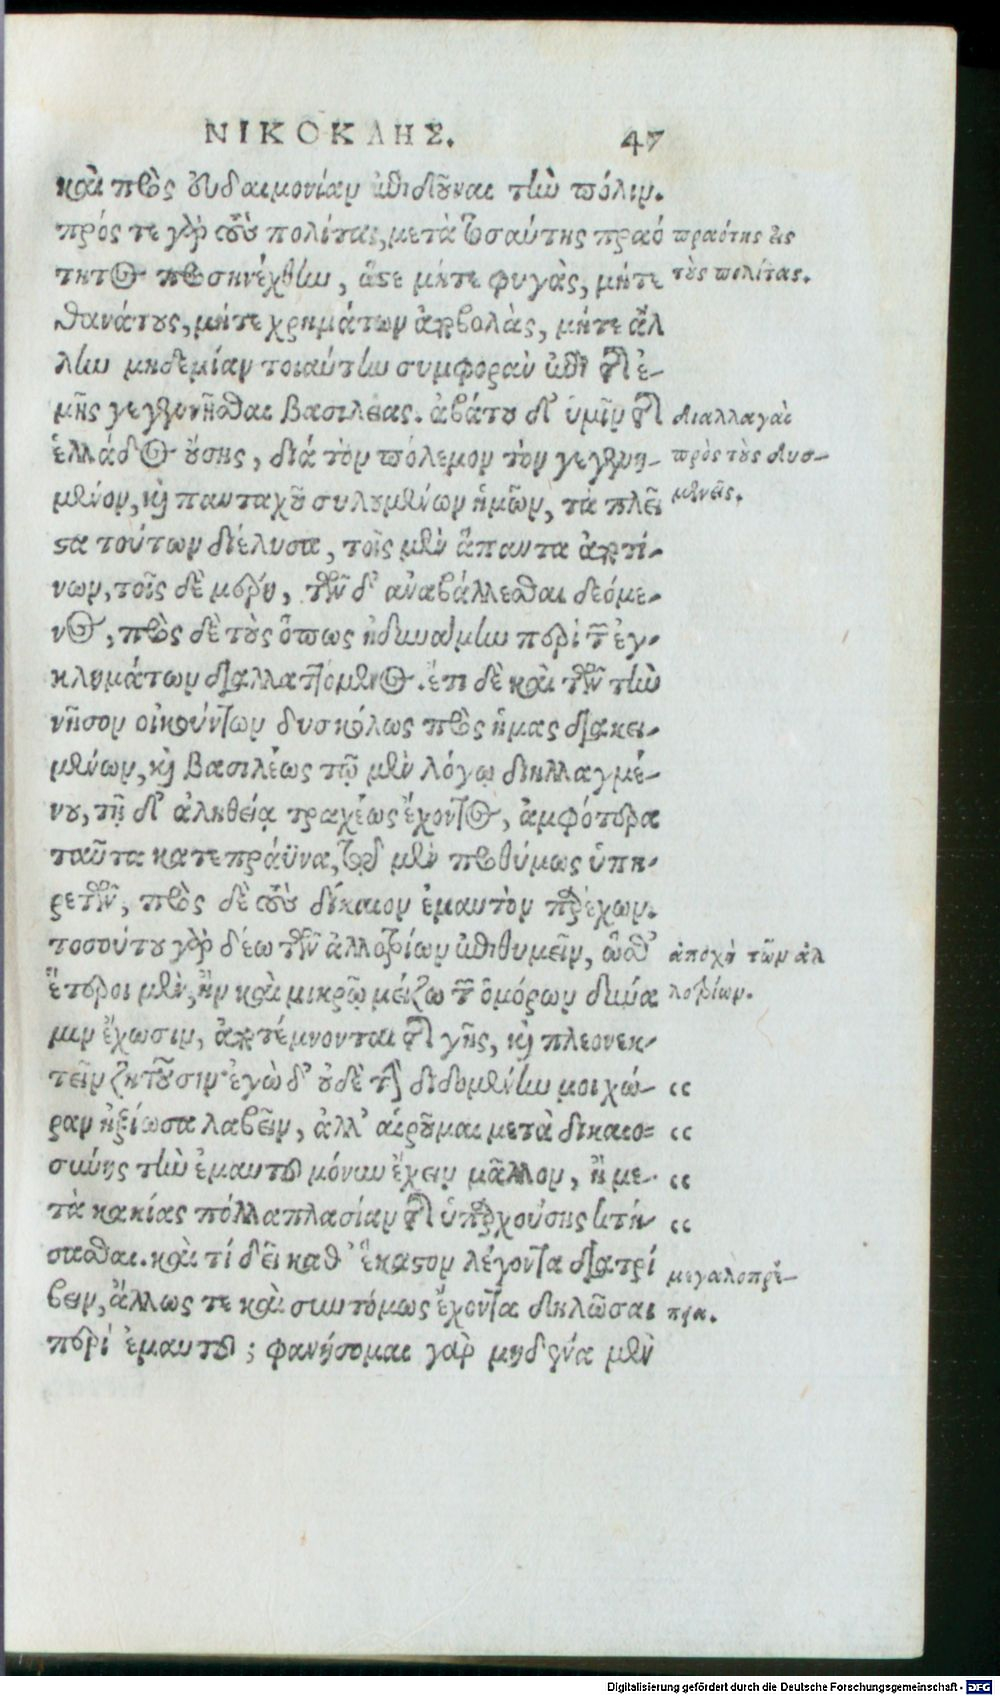 ΝΙΚΟΚΛΗΣ. 47
καὶ πρὸς εὐδαιμονίαν ἐπιδοῦναι τὴν πόλιν.
πρός τε γὰρ τοὺς πολίτας, μετὰ τοσαύτης πραό
πραότης εἰς
τητος προσηνέχθην, ὥστε μήτε φυγὰς, μήτε
τοὺς πολίτας.
θανάτους, μήτε χρημάτων ἀποβολὰς, μήτε ἄλ
λην μηδεμίαν τοιαύτην συμφορὰν ἐπὶ τῆς ἐ-
μῆς γεγενῆσθαι βασιλείας. ἀβάτου δ' ὑμῖν τῆς
διαλλαγαὶ
ἑλλάδος οὔσης, διὰ τὸν πόλεμον τὸν γεγενη-
πρὸς τοὺς δυσ-
μένον, καὶ πανταχοῦ συλουμένων ἡμῶν, τὰ πλεῖ
μενεῖς.
στα τούτων διέλυσα, τοῖς μὲν ἅπαντα ἀποτί-
νων, τοῖς δὲ μέρη, τῶν δ' ἀναβάλλεσθαι δεόμε-
νος, πρὸς δὲ τοὺς ὅπως ἠδυνάμην περὶ τῶν ἐγ-
κλημάτων διαλλαττόμενος. ἔτι δὲ καὶ τῶν τὴν
νῆσον οἰκούντων δυσκόλως πρὸς ἡμᾶς διακει-
μένων, καὶ βασιλέως τῷ μὲν λόγῳ διηλλαγμέ-
νου, τῇ δ' ἀληθείᾳ τραχέως ἔχοντος, ἀμφότερα
ταῦτα κατεπράϋνα, τῷ μὲν προθύμως ὑπη-
ρετῶν, πρὸς δὲ τοὺς δίκαιον ἐμαυτὸν παρέχων.
τοσούτου γὰρ δέω τῶν ἀλλοτρίων ἐπιθυμεῖν, ὥσθ'
ἀποχὴ τῶν ἀλ
ἕτεροι μὲν, ἢν καὶ μικρῷ μείζω τῶν ὁμόρων δύνα
λοτρίων.
μιν ἔχωσιν, ἀποτέμνονται τῆς γῆς, καὶ πλεονεκ-
τεῖν ζητοῦσιν· ἐγὼ δ' οὐδὲ τὴν διδομένην μοι χώ- “
ραν ἠξίωσα λαβεῖν, ἀλλ' αἱροῦμαι μετὰ δικαιο- “
σύνης τὴν ἐμαυτοῦ μόνην ἔχειν μᾶλλον, ἢ με- “
τὰ κακίας πολλαπλασίαν τῆς ὑπαρχούσης κτή- “
σασθαι. καὶ τί δεῖ καθ' ἕκαστον λέγοντα διατρί
μεγαλοπρέ-
βειν, ἄλλως τε καὶ συντόμως ἔχοντα δηλῶσαι
πεια.
περὶ ἐμαυτοῦ; φανήσομαι γὰρ μηδένα μὲν
Digitalisierung gefördert durch die Deutsche Forschungsgemeinschaft - DFG